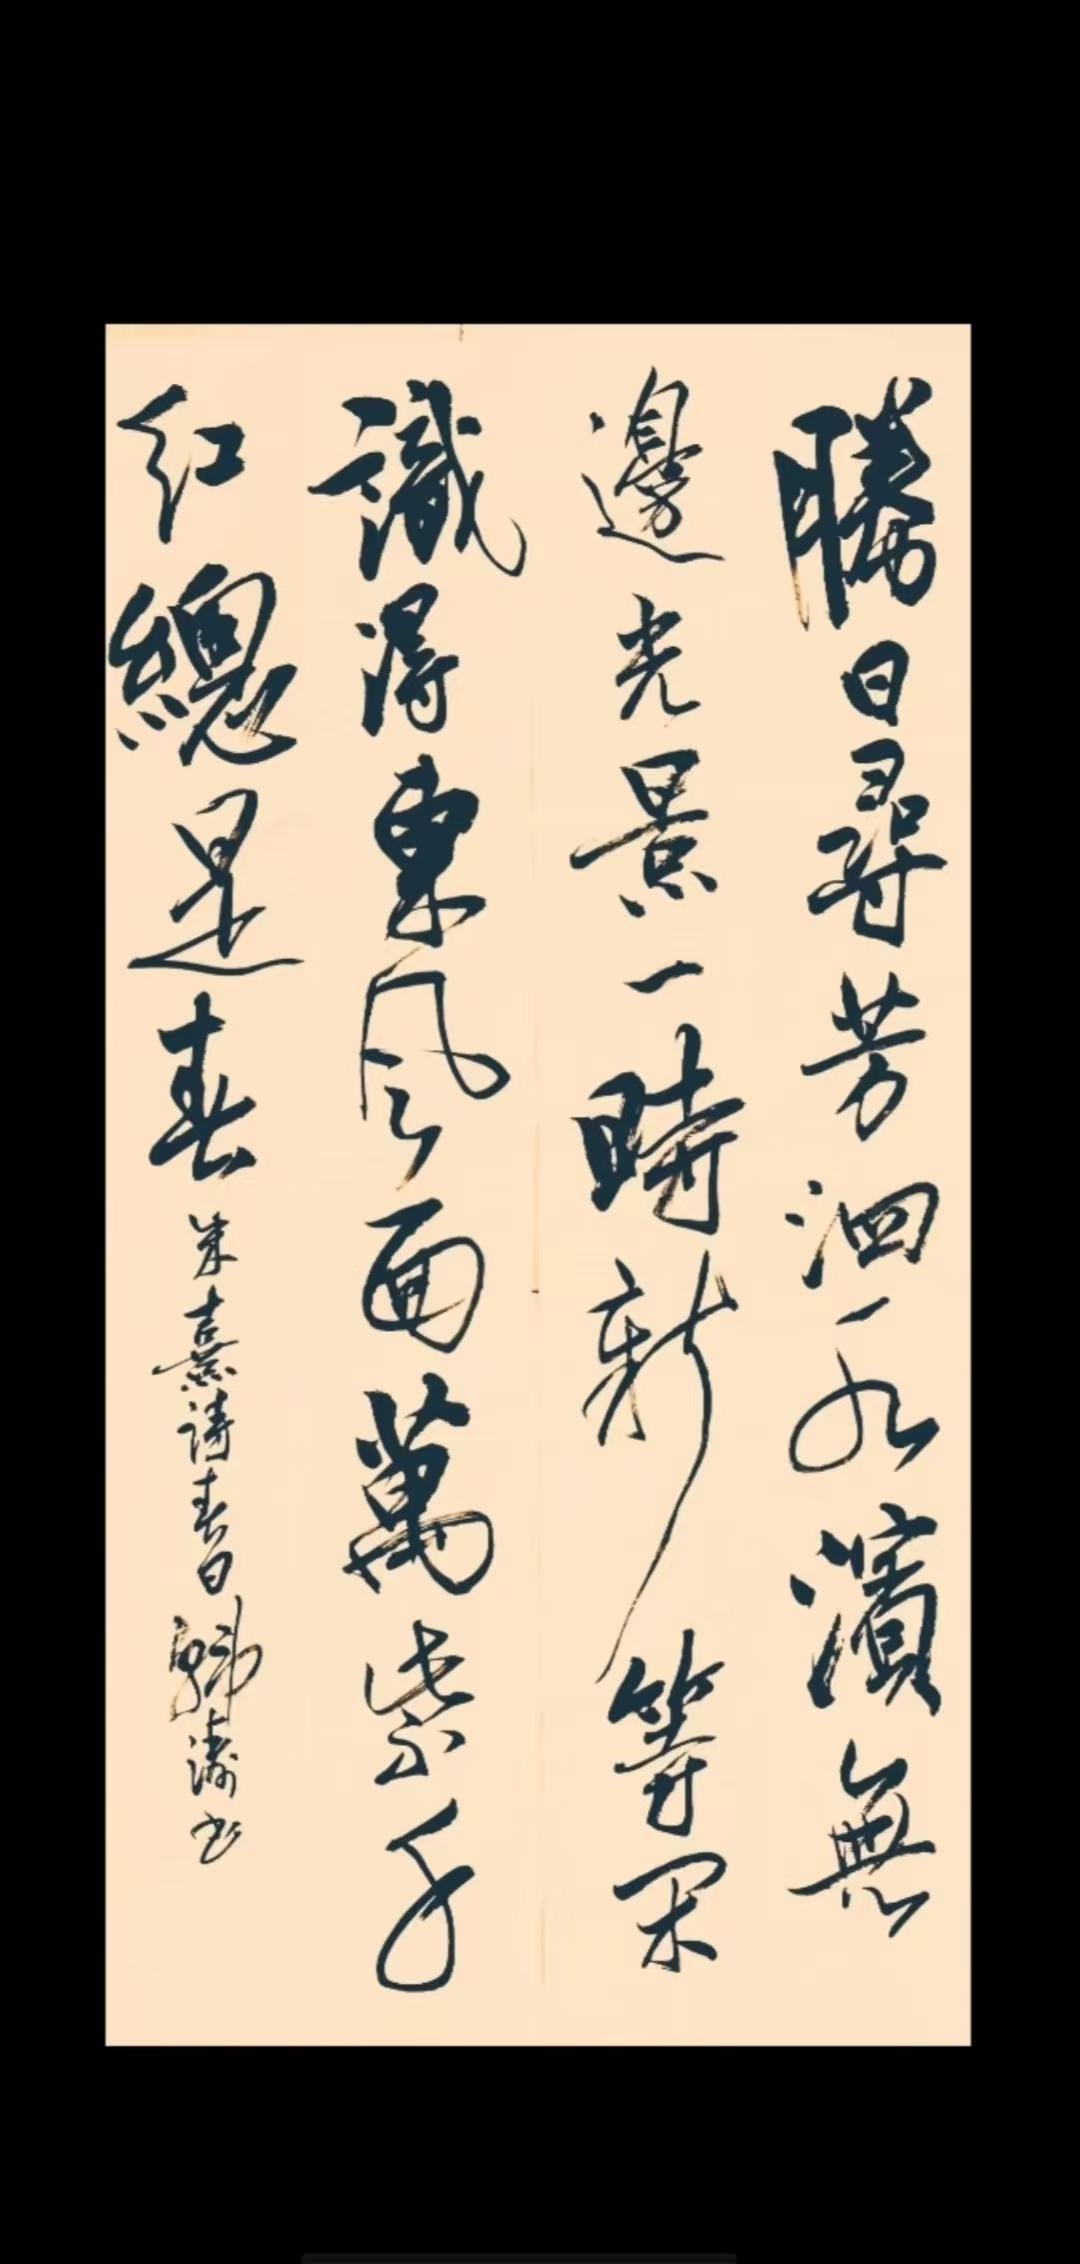 勝日尋芳泗水濱無
邊光景一時新等閑
識得東風面萬紫千
紅總是春朱熹詩春日